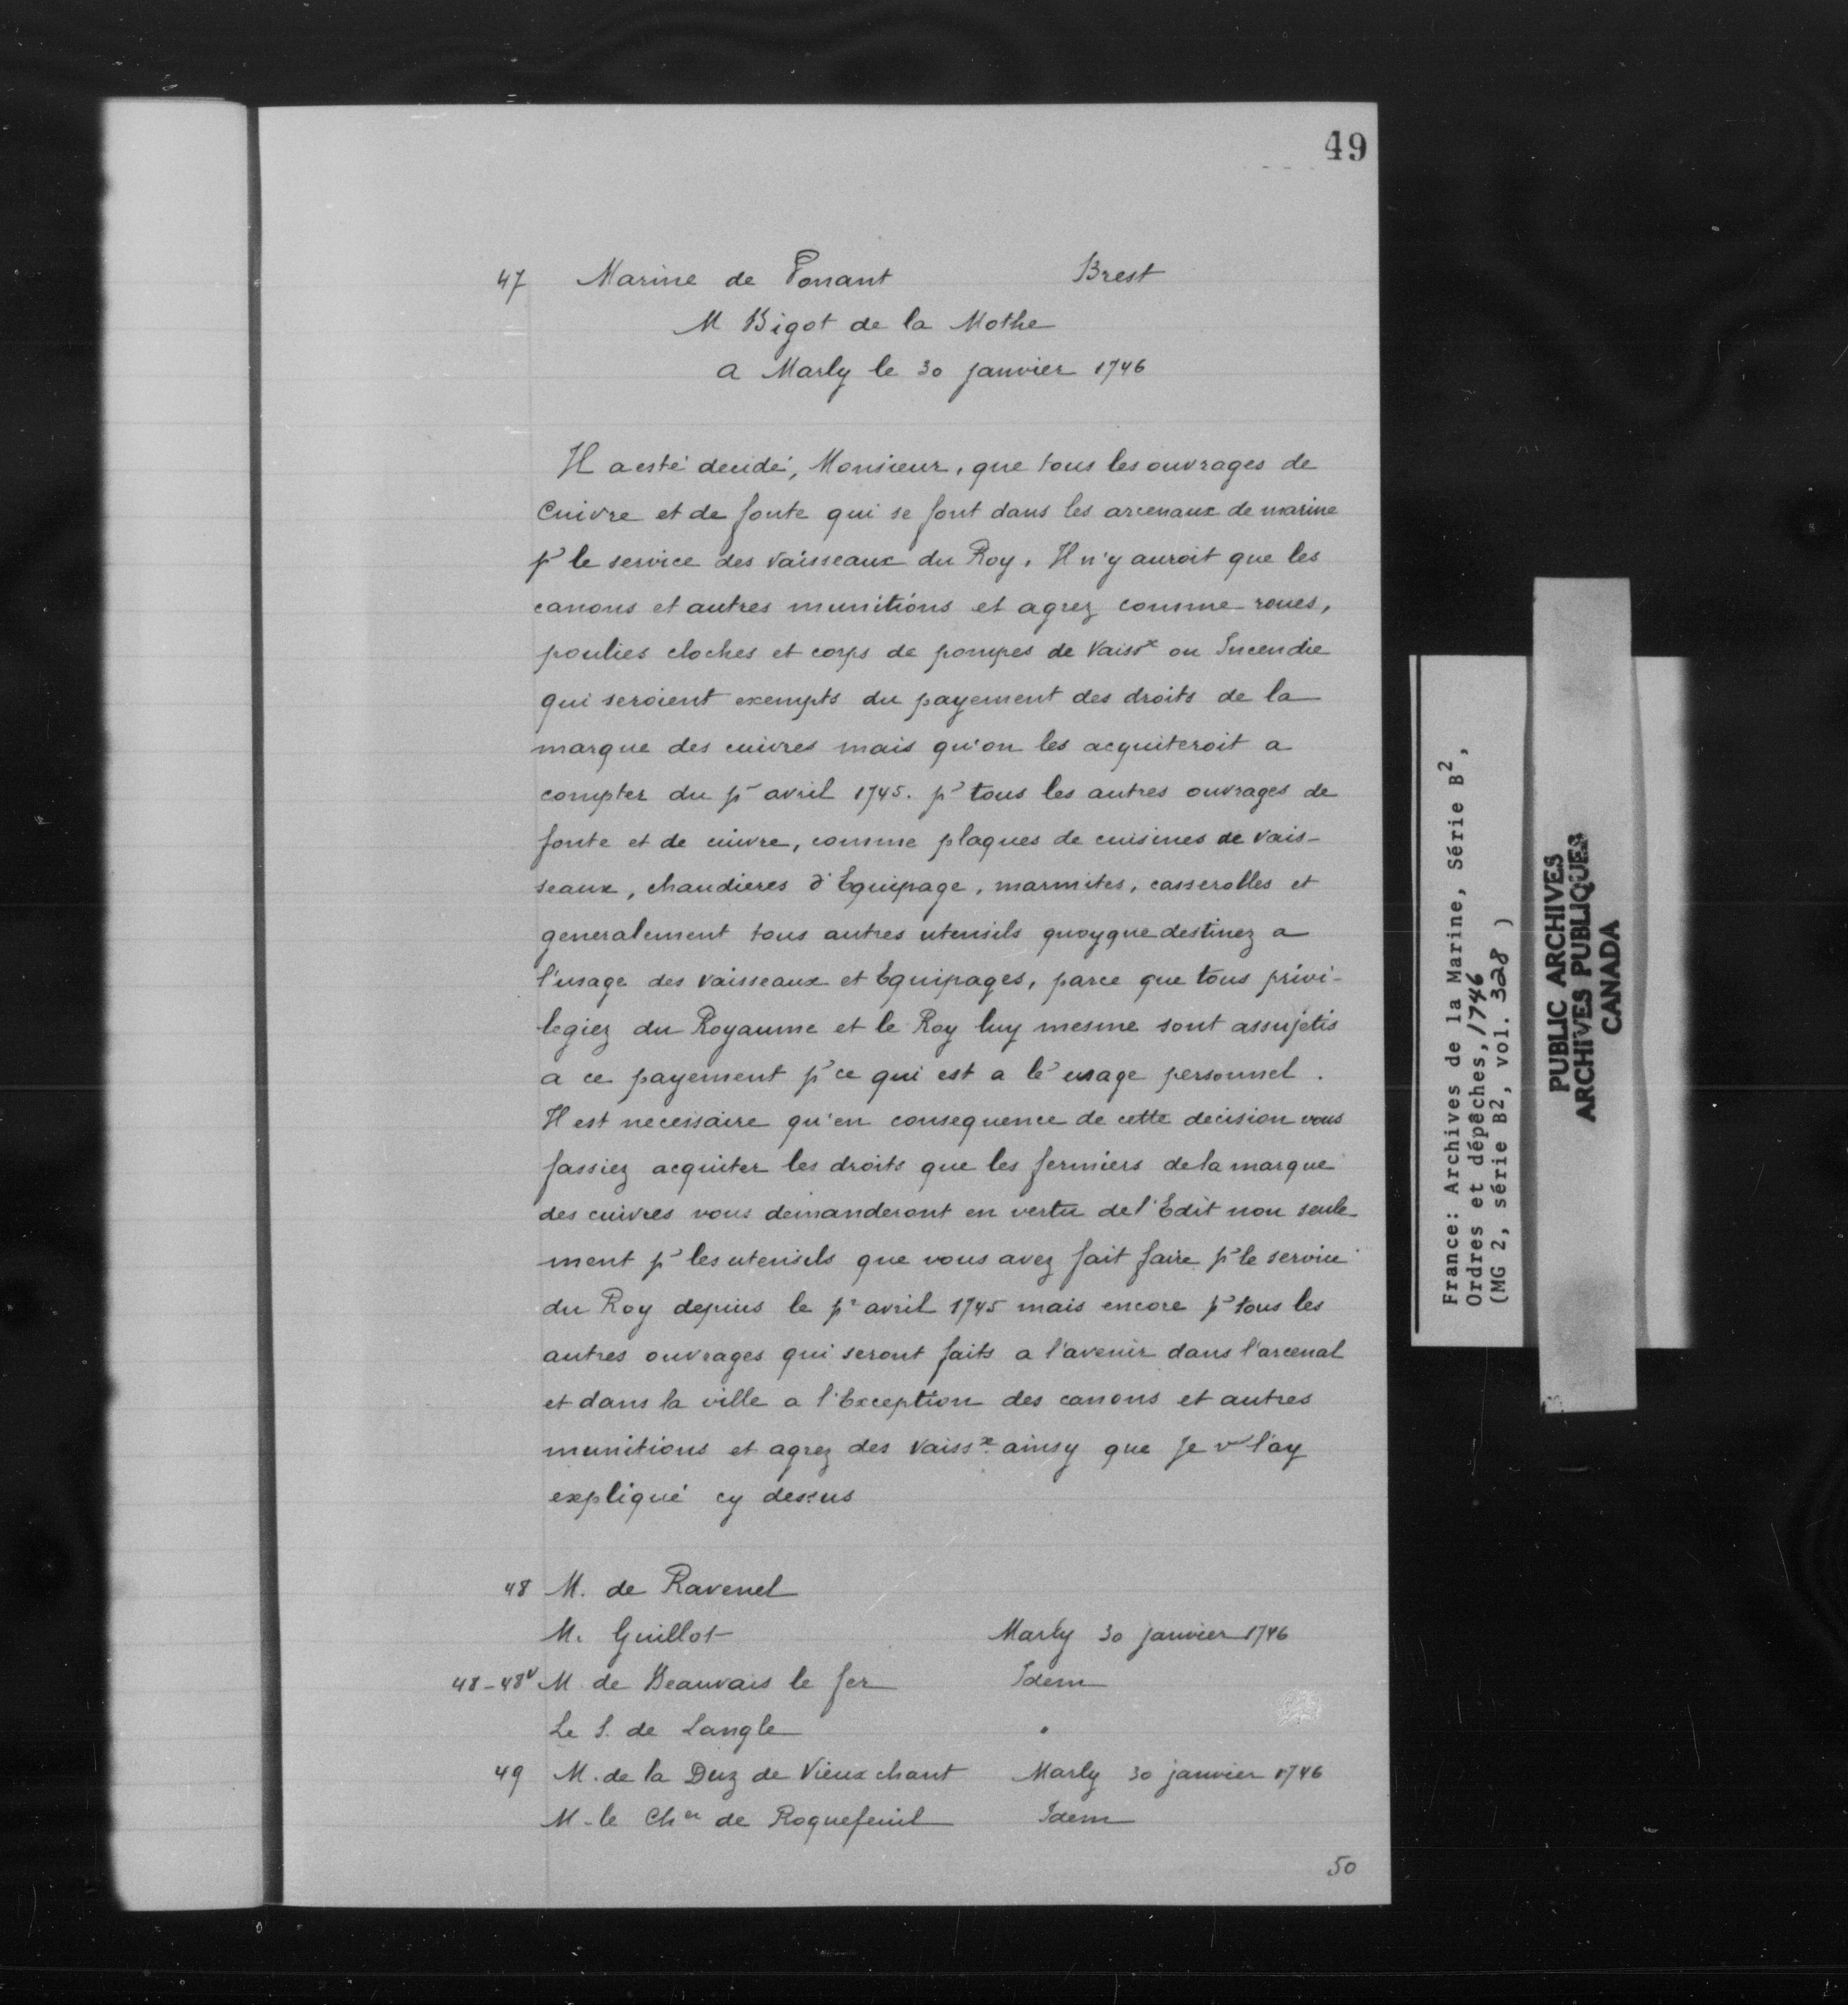 49
47 Marine de Ponant Brest
M Bigot de la Mothe
a Marly le 30 janvier 1746
Il a esté decidé, Monsieur, que tous les ouvrages de
Cuivre et de fonte qui se font dans les arcenaux de marine
pr le service des vaisseaux du Roy. Il n'y auroit que les
canons et autres munitions et agrez comme roues,
poulies cloches et corps de pompes de Vaissx ou Incendie
qui seroient exempts du payement des droits de la
marque des cuivres mais qu'on les acquiteroit a
compter du pr avril 1745. pr tous les autres ouvrages de
fonte et de cuivre, comme plaques de cuisines de vais-
seaux, chaudieres d'Equipage, marmites, casserolles et
generalement tous autres utensils quoyque destinez a
l'usage des vaisseaux et Equipages, parce que tous privi-
legiez du Royaume et le Roy luy mesme sont assujetis
a ce payement pr ce qui est a le usage personnel.
Il est necessaire qu'en consequence de cette decision vous
fassiez acquiter les droits que les fermiers de la marque
des cuivres vous demanderont en vertu de l'Edit non seule-
ment pr les utensils que vous avez fait faire pr le service
du Roy depuis le pr avril 1745 mais encore pr tous les
autres ouvrages qui seront faits a l'avenir dans l'arcenal
et dans la ville a l'Exception des canons et autres
munitions et agrez des vaissx ainsy que Je v l'ay
expliqué cy dessus
48 M. de Ravenel
M. Guillot Marly 30 janvier 1746
48-48v M de Beauvais le fer Idem
Le S. de Langle "
49 M. de la Duz de Vieux chant Marly 30 janvier 1746
M. le Cher de Roquefeuil Idem
50
France: Archives de la Marine, Série B2,
Ordres et dépêches, 1746
(MG 2, série B2, vol. 328 )
PUBLIC ARCHIVES
ARCHIVES PUBLIQUES
CANADA